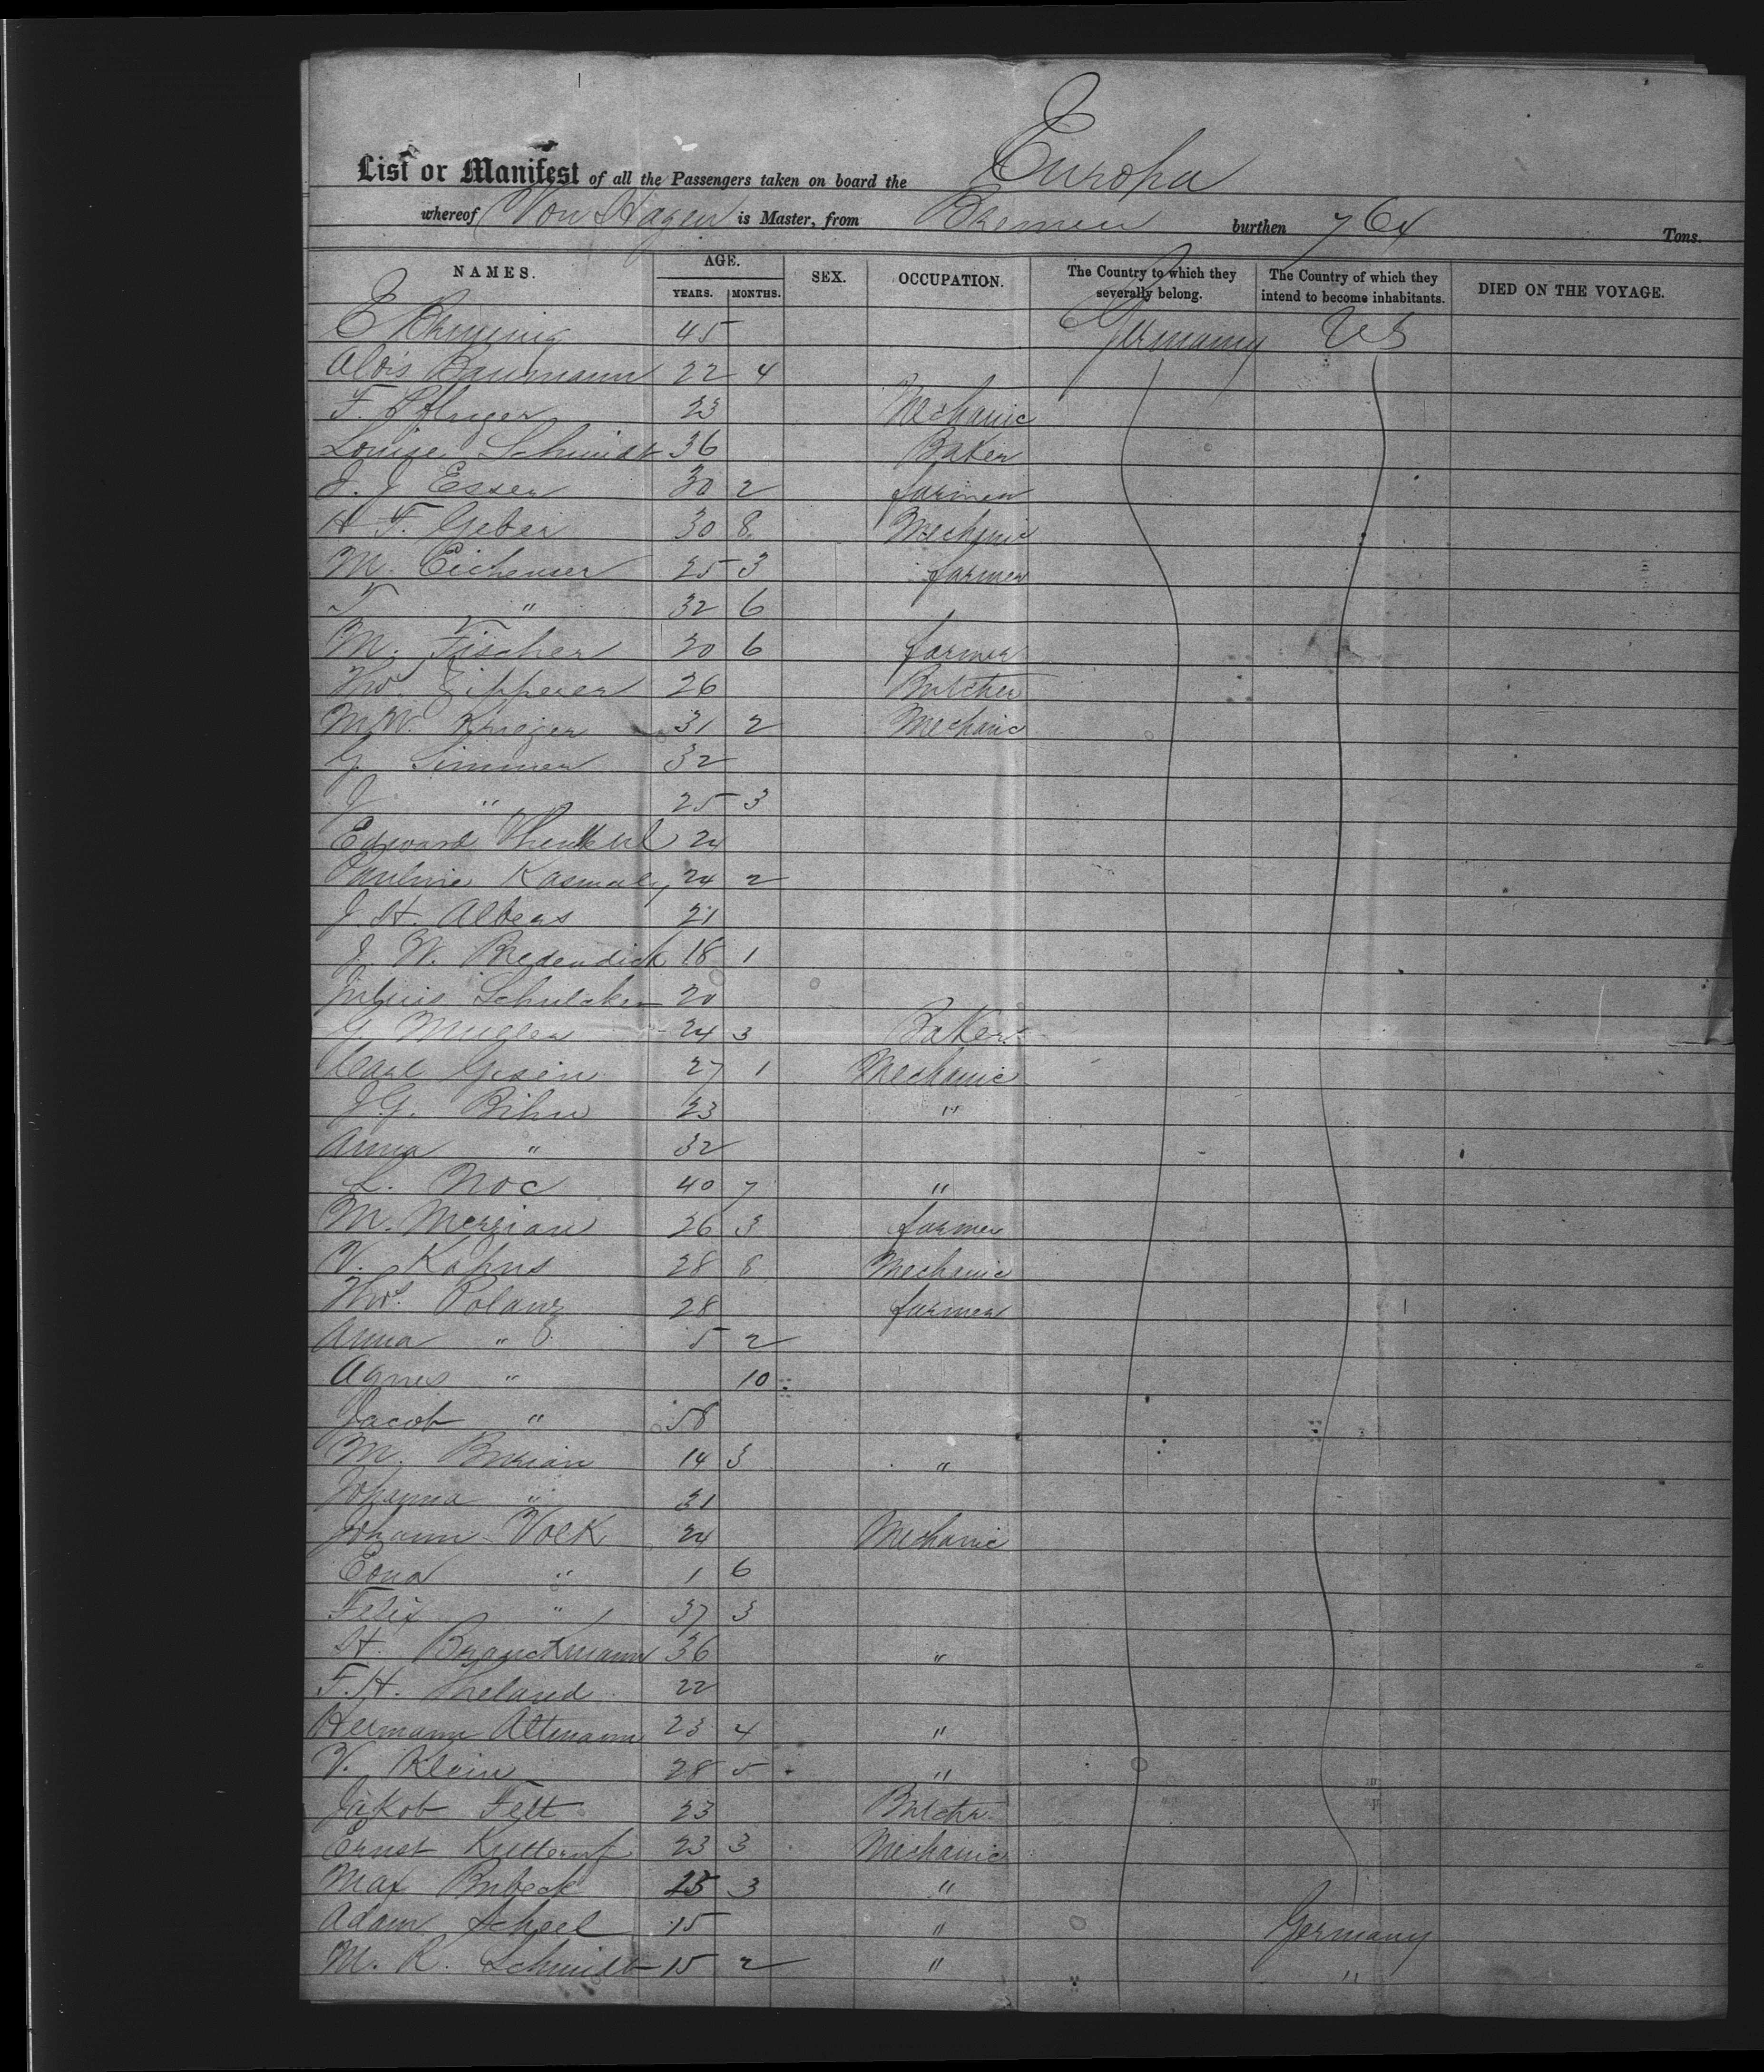 List or Manifest of all the Passengers taken on board the Europa
whereof Von Hagen is Master, from Bremen burthen 764 Tons.
NAMES. AGE. YEARS. MONTHS. SEX. OCCUPATION. The Country to which they severally belong. The Country of which they intend to become inhabitants. DIED ON THE VOYAGE.
E 45 Germany US
Alois Baumann 22 4
F. Pfluger 23 Mechanic
Louise Schmidt 36 Baker
J. J Esser 30 2 farmer
H F. Geber 30 8 Mechanic
M. Eichenser 25 3 farmer
T " 32 6
M. Fischer 20 6 farmer
Zipperer 26 Butcher
M.W. Krieger 31 2 Mechanic
G Simmer 32
J " 25 3
Edward 24
Pauline Kasmaly 24 2
J. H. Albers 21
J. W. Bredendick 18 1
Julius 20
G. Muller 24 3 Baker
Carl Gisein 27 1 Mechanic
J.G. Bihn 23 "
Anna " 32
L. Noc 40 7 "
M. Merrian 26 3 farmer
V. Kophs 28 8 Mechanic
Thos. Polanz 28 farmer
Anna " 5 2
Agnes " 10
Jacob " 58
M. Burian 14 3 "
Johanna " 31
Johann Volk 24 Mechanic
Edna " 1 6
Felix " 37 3
H. Branckmann 36 "
F. H. 22
Hermann Altmann 23 4 "
V. Klein 28 5 "
Jakob Felt 23 Butcher
Ernst 23 3 Mechanic
Max Bubeck 25 3 "
Adam Scheel 15 " Germany
M. R. Schmidt 15 2 " "